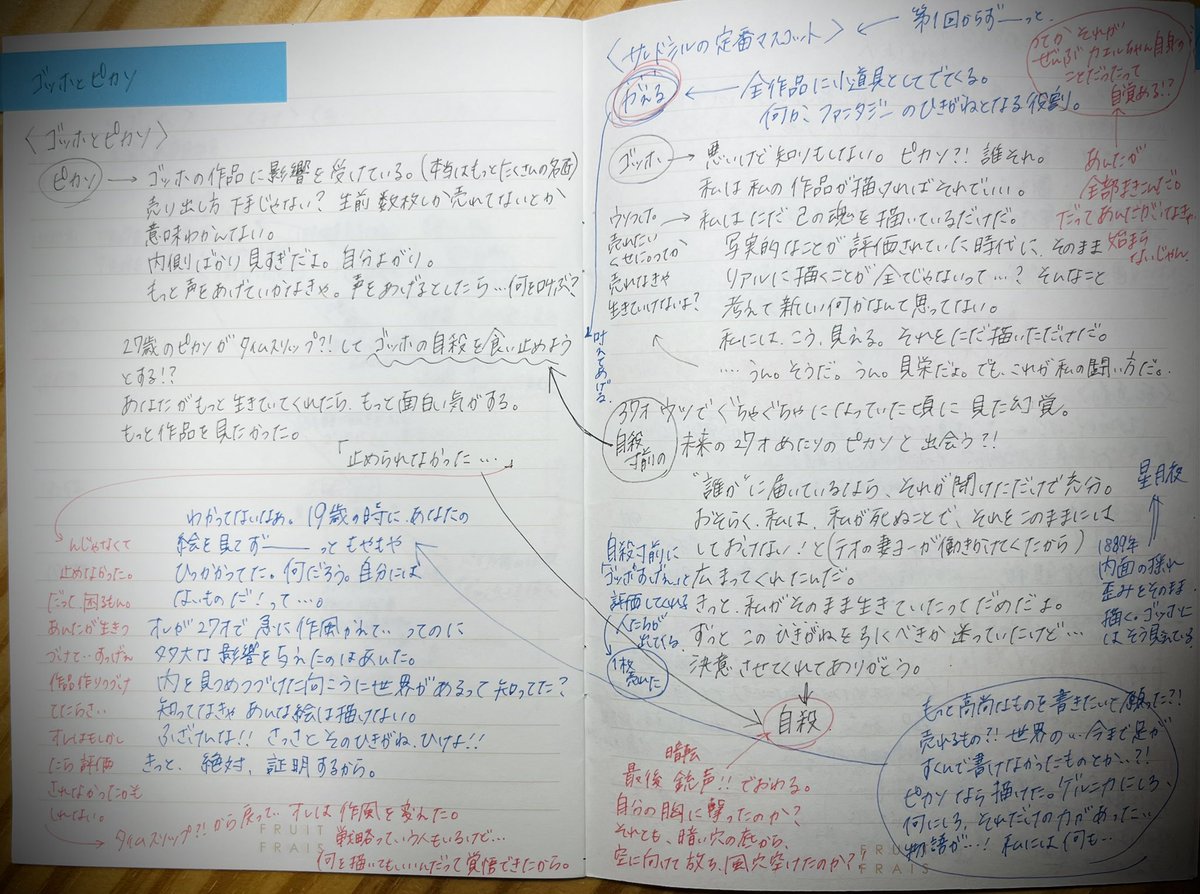 ゴッホとピカソ
〈ゴッホとピカソ〉
ピカソ → ゴッホの作品に影響を受けている。(本当はもっとたくさんの名画)
売り出し方 下手じゃない? 生前 数枚しか売れてないとか
意味わかんない。
内側ばかり見すぎだよ。自分よがり。
もっと声をあげていかなきゃ。声をあげるとしたら…何を叫ぶ?
27歳のピカソがタイムスリップ?!して ゴッホの自殺を食い止めよう
とする!?
あなたがもっと生きていてくれたら、もっと面白い気がする。
もっと作品を見たかった。
「止められなかった…」
わかってないなあ。19歳の時に、あなたの
絵を見てず――っともやもや
ひっかかってた。何だろう。自分には
ないものだ!って…。
オレが27才で急に作風かえてい ってのに
多大な影響を与えたのはあんた。
内を見つめつづけた向こうに世界があるって知ってた?
知ってなきゃ あんな絵は描けない。
ふざけんな!! さっさとそのひきがね、ひけよ!!
きっと、絶対、証明するから。
んじゃなくて
止めなかった。
だって、困るもん。
あんたが生きつ
づけて…すっげえ
作品作りつづけ
てたらさい
オレはもしかし
たら評価
されなかったかも
しれない。
タイムスリップ?!から戻って、オレは作風を変えた。
戦略っていう人もいるけど…
何を描いてもいいんだって覚悟できたから。
FRUIT
FRAIS
〈サルドシルの定番マスコット〉 ← 第1回からず――っと。
かえる ← 全作品に小道具としてでてくる。
何か、ファンタジーのひきがねとなる役割。
ってか それが
ぜんぶ カエルちゃん自身の
ことだったって
自覚ある!?
あんたが
全部まきこんだ。
だってあんたがいなきゃ
始まら
ないじゃん。
叶えてあげる。
ゴッホ → 悪いけど知りもしない。ピカソ?! 誰それ。
私は私の作品が描ければそれでいい。
ウソつけ。
売れたい
くせに。ってか
売れなきゃ
生きていけないよ?
私はただ己の魂を描いているだけだ。
写実的なことが評価されていた時代に、そのまま
リアルに描くことが全てじゃないって…? そんなこと
考えて新しい何かなんて思ってない。
私には、こう、見える。それをただ描いただけだ。
…うん。そうだ。うん。見栄だよ。でも、これが私の闘い方だ。
自殺
寸前の
37才 ウツでぐちゃぐちゃになっていた頃に見た幻覚。
未来の27才あたりのピカソと出会う?!
"誰か"に届いているなら、それが聞けただけで充分。
おそらく、私は、私が死ぬことで、それをこのままには
しておけない!と(テオの妻ヨーが働きかけてくたから)
広まってくれたんだ。
きっと、私がそのまま生きていたってだめだよ。
ずっとこのひきがねを引くべきか迷っていたけど…
決意させてくれてありがとう。
自殺
自殺寸前に
「ゴッホすげえ」と
評価してくれる
人たちが
出てくる
1枚
売れた
星月夜
1889年
内面の揺れ
歪みをそのまま
描く。ゴッホに
はそう見えている。
暗転
最後 銃声!!でおわる。
自分の胸に撃ったのか?
それとも、暗い穴の底から、
空に向けて放ち、風穴空けたのか?
もっと高尚なものを書きたいて願った?!
売れるもの?! 世界の…今まで足が
すくんで書けなかったものとか…?!
ピカソなら描けた。ゲルニカにしろ、
何にしろ、それだけの力があった…
物語が…! 私には何も…
FRUIT
FRAIS